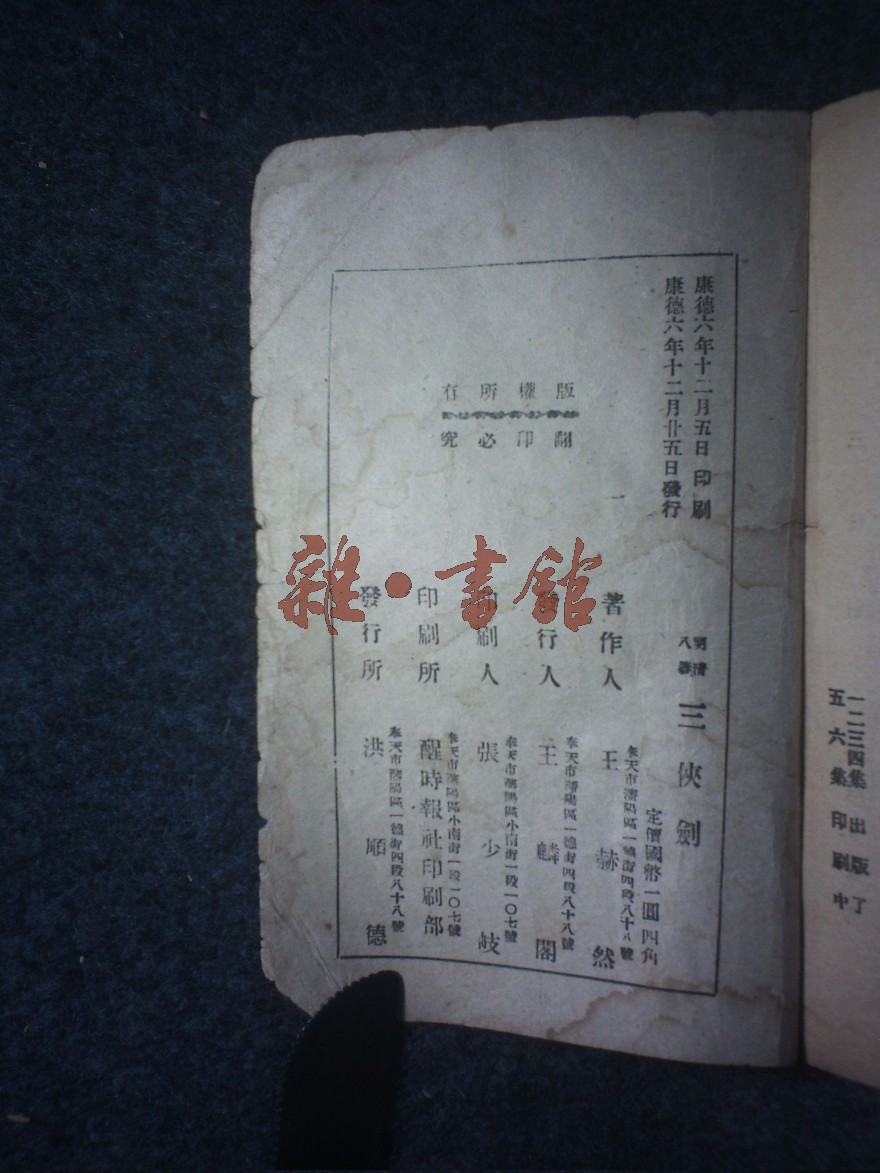 一二三四集出版了
五六集印刷中
康德六年十二月五日印刷
康德六年十二月廿五日發行
明清
八義
三俠劍
定價國幣一圓四角
版權所有
翻印必究
奉天市瀋陽區一德街四段八十八號
著作人 王赫然
奉天市瀋陽區一德街四段八十八號
發行人 王麟閣
奉天市瀋陽區小南街一段一〇七號
印刷人 張少岐
奉天市瀋陽區小南街一段一〇七號
印刷所 醒時報社印刷部
奉天市瀋陽區一德街四段八十八號
發行所 洪順德
雜·書館